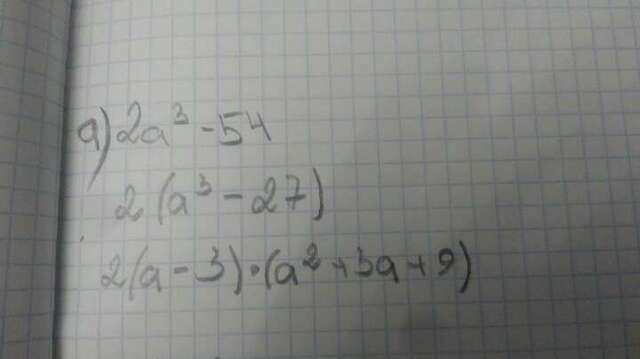 a) 2a³ - 54
2(a³ - 27)
2(a - 3)·(a² + 3a + 9)